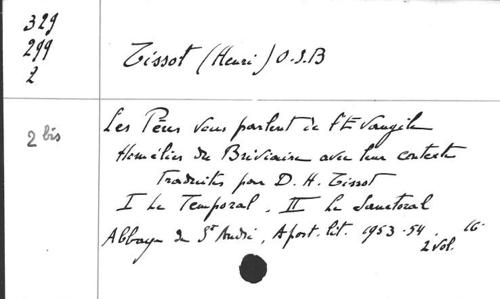 329
299
2
Tissot (Henri) O.S.B
2 bis
Les Pères vous parlent de l'Evangile
Homélies du Bréviaire avec leur contexte
Traduites par D. H. Tissot
I Le Temporal. II Le Sanctoral
Abbaye de St André, Apost. lit. 1953-54. 16
2 vol.